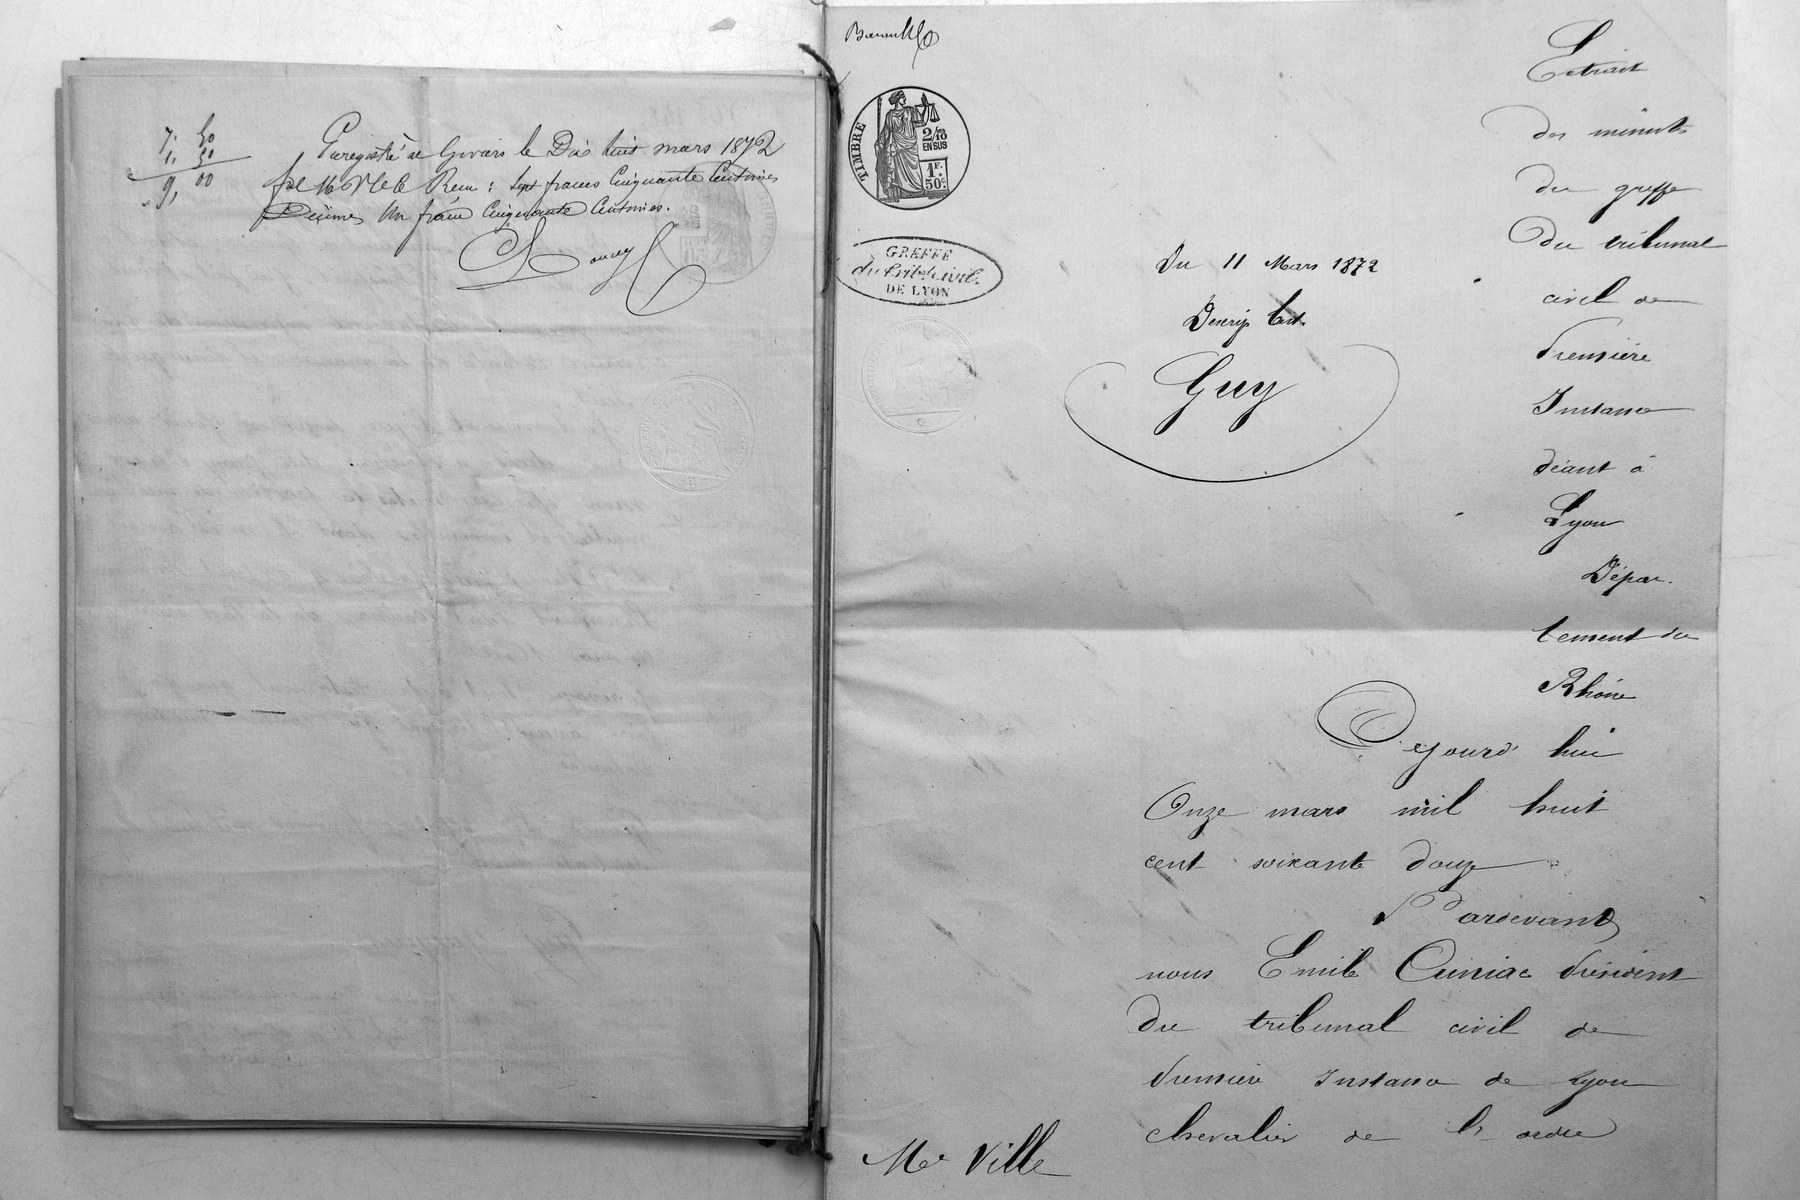 7, 50
1, 50
9, 00
Enregistré à Givors le Dix huit mars 1872
fol 16 V. Reçu : Sept francs Cinquante Centimes
Décimes Un franc Cinquante Centimes.
TIMBRE
2/10
EN SUS
1F.
50c.
GREFFE
du tribal civil
DE LYON
Du 11 Mars 1872
Descrip test.
Guy
Extrait
des minutes
du greffe
du tribunal
civil de
première
Instance
séant à
Lyon
Dépar-
tement du
Rhône
Cejourd'hui
Onze mars mil huit
cent soixante douze
Pardevant
nous Emile Cuniac Président
du tribunal civil de
première Instance de Lyon
chevalier de l'ordre
Me Ville